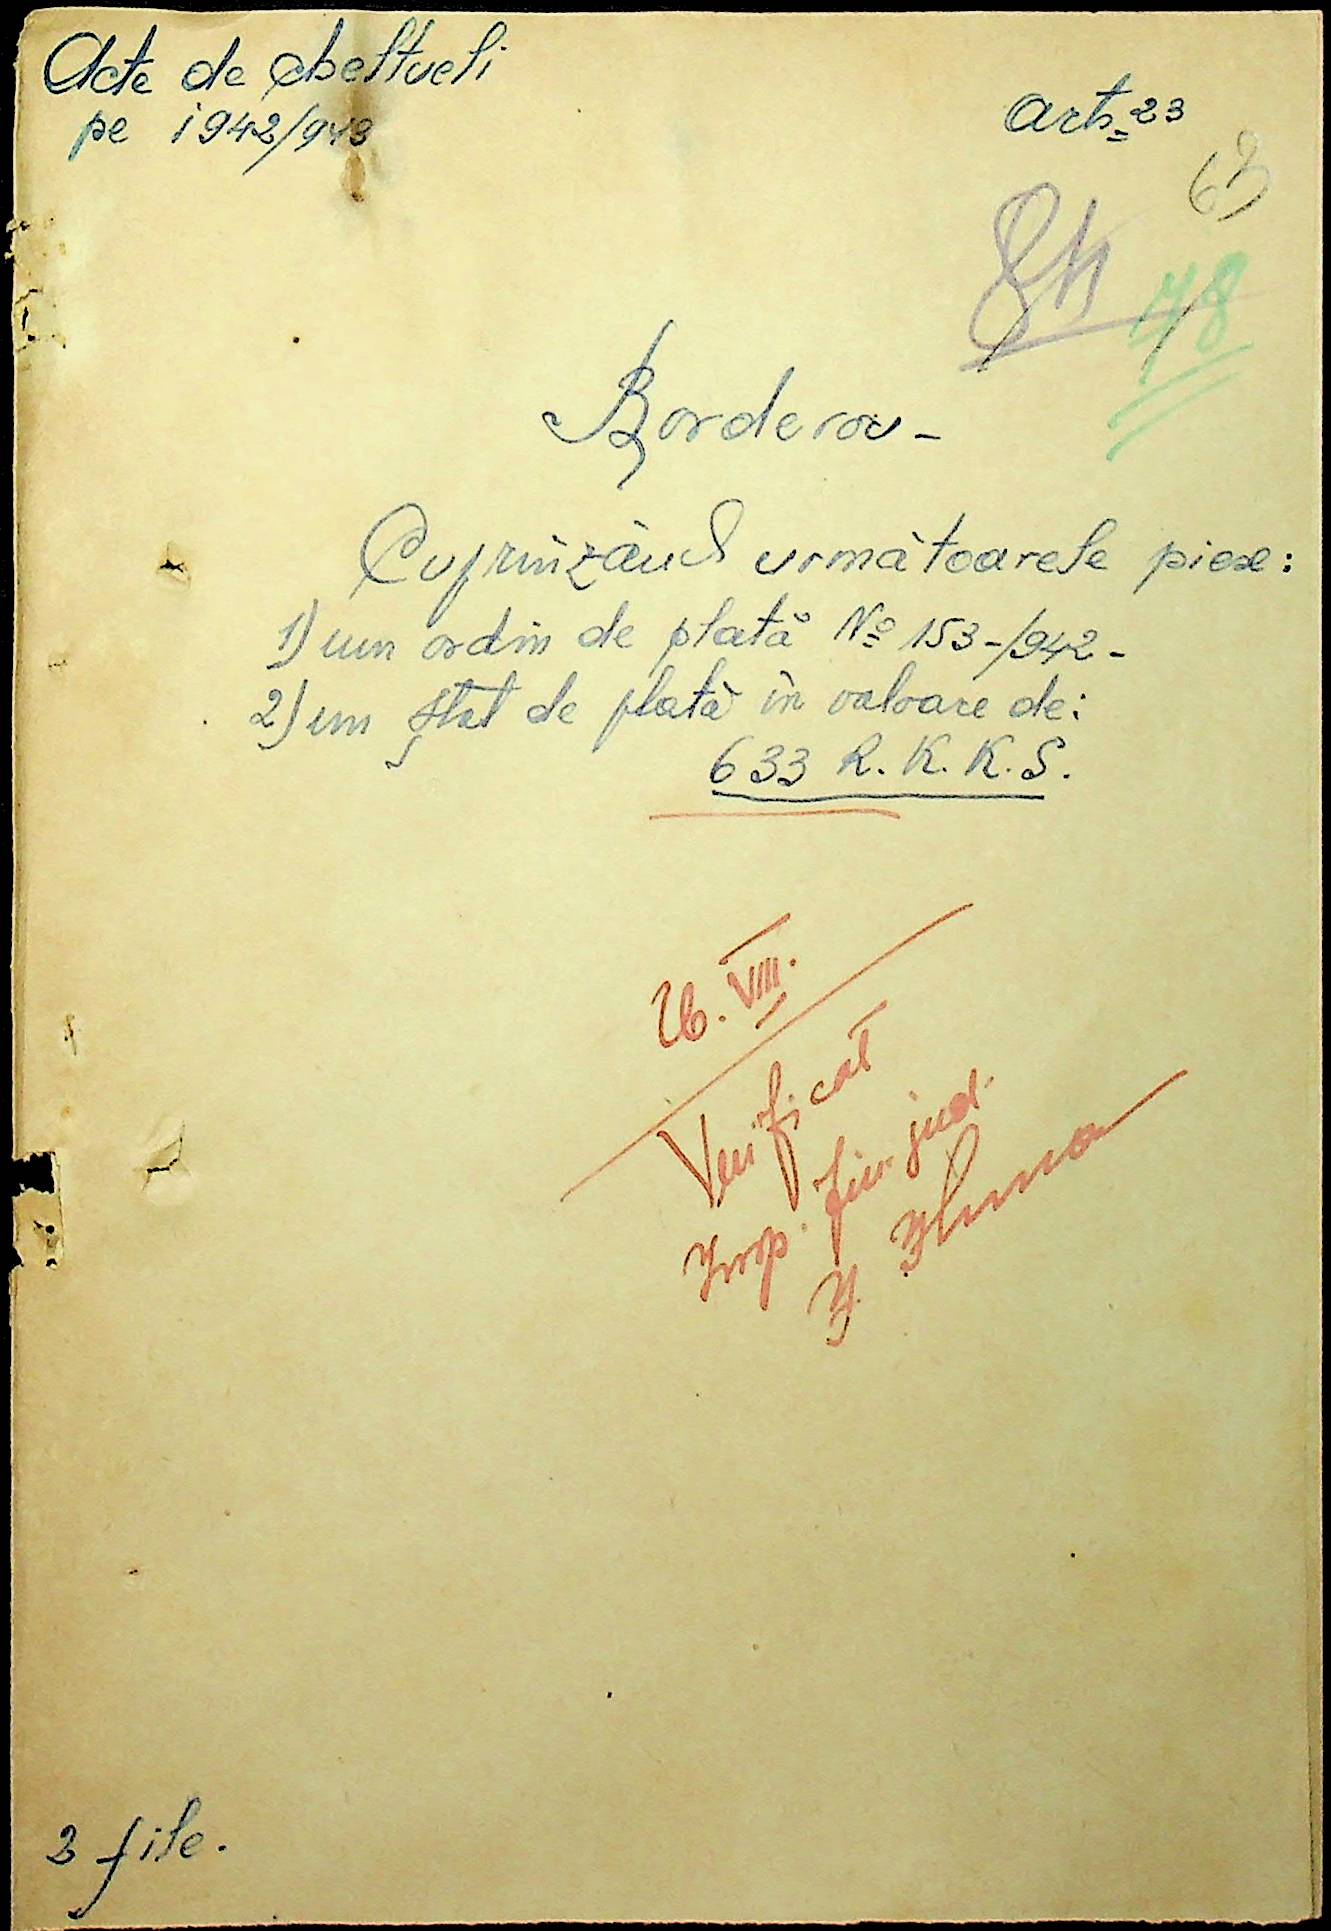 Acte de cheltueli
pe 1942/943
art. 23
63
78
Borderou -
Cuprinzând următoarele piese:
1) un ordin de plată No 153-/942-
2) un ștat de plată în valoare de:
633 R. K. K. S.
26. VIII.
Verificat
Insp. fin. jud.
3 file.